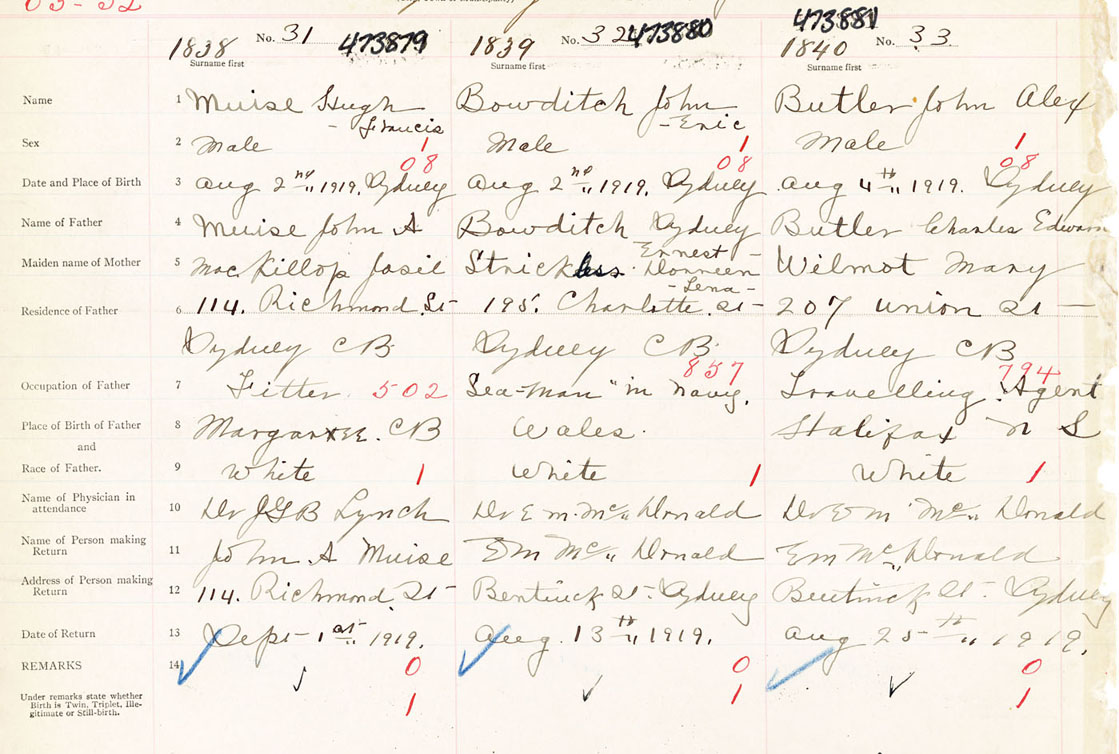 03-32
1838 No. 31 473879 1839 No. 32 473880 1840 No. 33 473881
Surname first Surname first Surname first
Name 1 Muise Hugh Bowditch John Butler John Alex
- Francis - Eric
Sex 2 Male 1 Male 1 Male 1
08 08 08
Date and Place of Birth 3 Aug 2nd " 1919. Sydney Aug 2nd " 1919. Sydney Aug 4th " 1919. Sydney
Name of Father 4 Muise John A Bowditch Sydney Butler Charles Edward
Ernest -
Maiden name of Mother 5 MacKillop Josie Donneen Wilmot Mary
- Lena -
Residence of Father 6 114. Richmond St 195. Charlotte St - 207 Union St -
Sydney CB Sydney CB. Sydney CB
857 794
Occupation of Father 7 Fitter. 502 Sea-man " in Navy. Travelling Agent
Place of Birth of Father 8 Margaree. CB Wales. Halifax N S
and
Race of Father. 9 White 1 White 1 White 1
Name of Physician in
attendance 10 Dr JGB Lynch Dr E M Mc " Donald Dr E M Mc " Donald
Name of Person making
Return 11 John A Muise E M Mc " Donald E M Mc " Donald
Address of Person making
Return 12 114. Richmond St Bentinck St. Sydney Bentinck St. Sydney
Date of Return 13 Sept 1st " 1919. Aug. 13th " 1919. Aug 25th " 1919.
REMARKS 14 0 0 0
Under remarks state whether
Birth is Twin, Triplet, Ille-
gitimate or Still-birth. 1 1 1